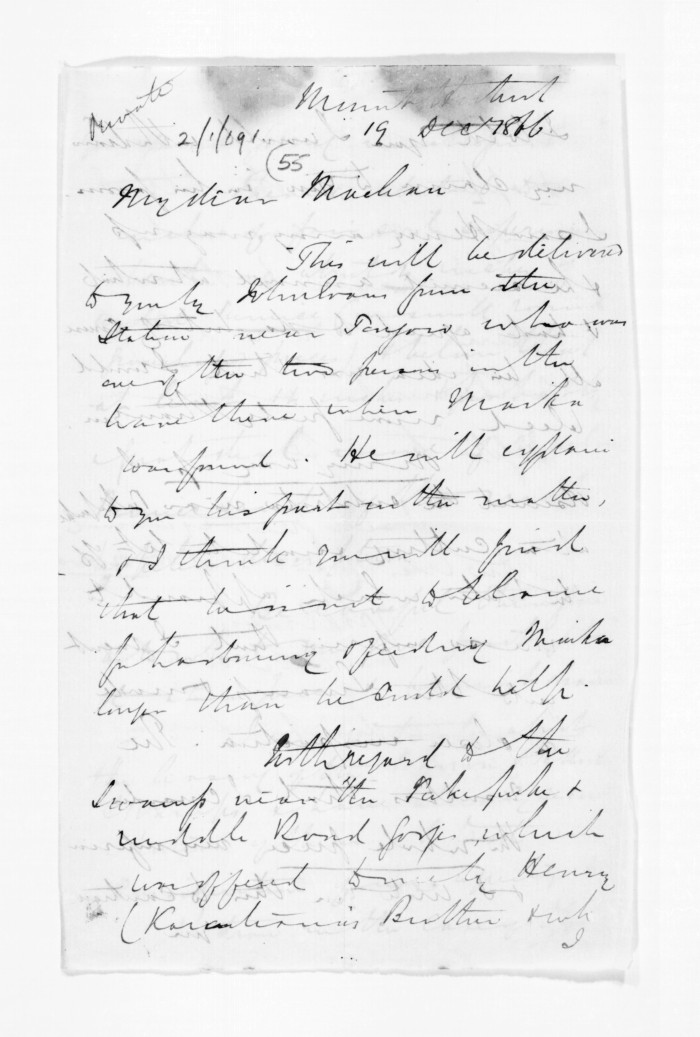 Private
Mount
2/1/091 19 Dec 1866
55
My dear Maclean
This will be delivered
to you by John Evans from the
Station near who was
one of the two persons in the
there when Maika
was found. He will explain
to you his part in the matter,
& I think you will find
that he is not to blame
for harbouring or feeding Maika
longer than he could help.
With regard to the
Swamp near the Pakipaki &
middle Road gorge which
was offered to me by Henry
(Karaitiana's Brother & wh
I